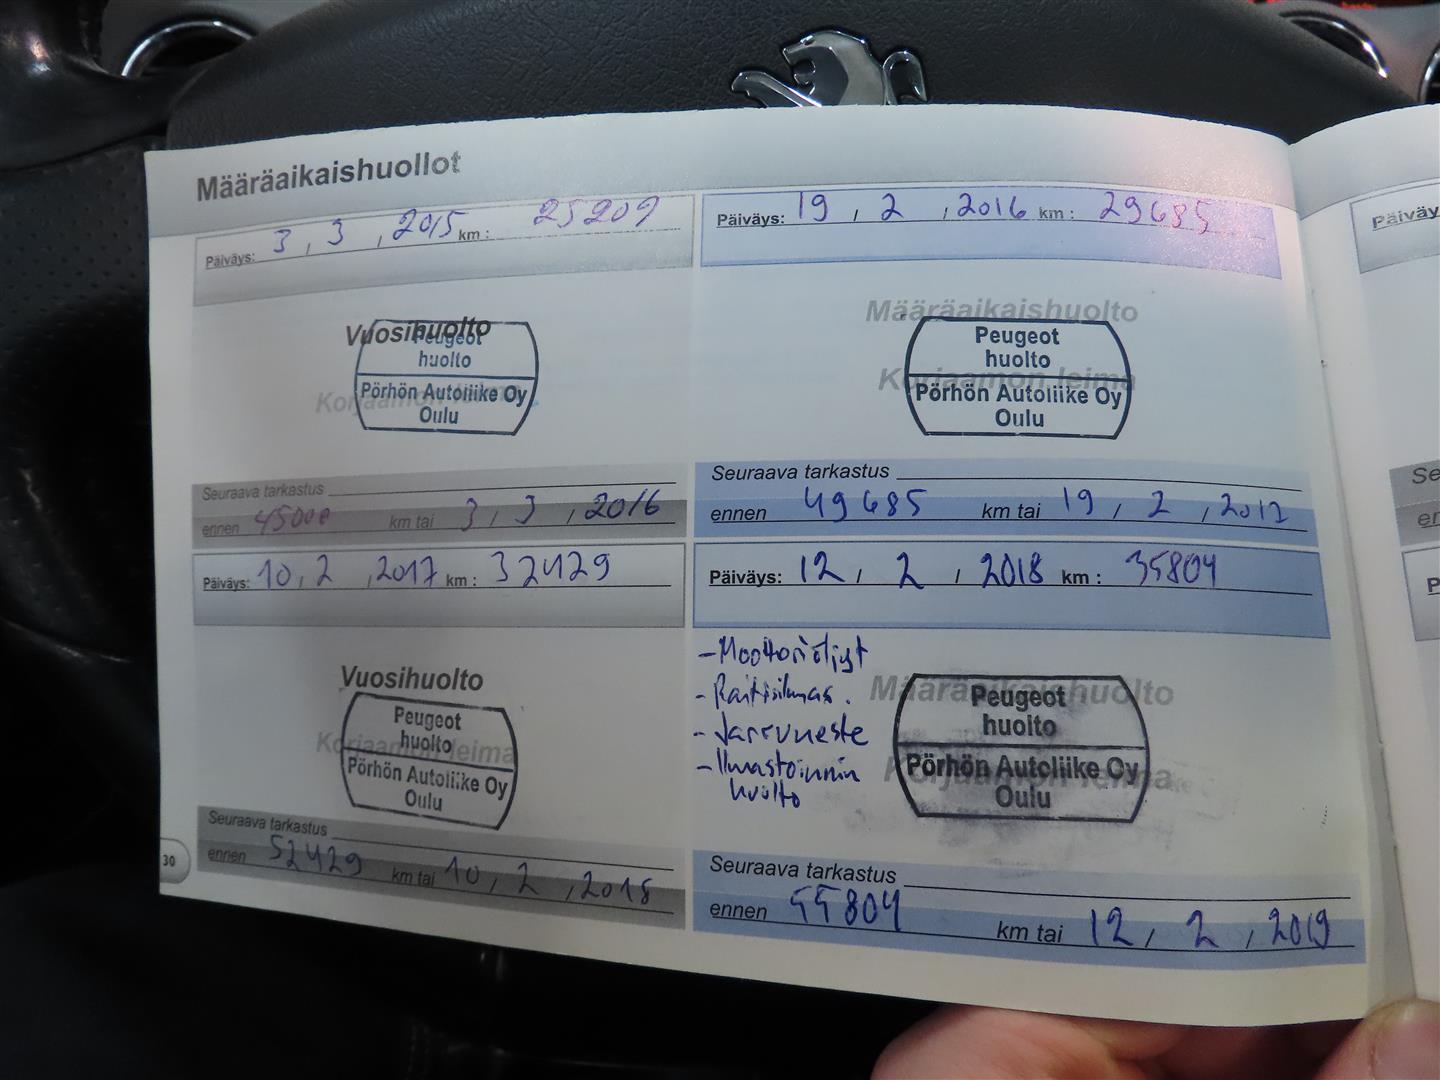 Määräaikaishuollot
Päiväys: 3 , 3 , 2015 km : 25209
Vuosihuolto
Peugeot
huolto
Korjaamon leima
Pörhön Autoliike Oy
Oulu
Seuraava tarkastus
ennen 45000 km tai 3 , 3 , 2016
Päiväys: 19 , 2 , 2016 km : 29685
Määräaikaishuolto
Peugeot
huolto
Korjaamon leima
Pörhön Autoliike Oy
Oulu
Seuraava tarkastus
ennen 49685 km tai 19 , 2 , 2017
Päiväys: 10 , 2 , 2017 km : 32429
Vuosihuolto
Peugeot
huolto
Korjaamon leima
Pörhön Autoliike Oy
Oulu
Seuraava tarkastus
ennen 52429 km tai 10 , 2 , 2018
Päiväys: 12 , 2 , 2018 km : 35804
- Moottoriöljyt
- Raitisilmas.
- Jarruneste
- Ilmastoinnin
huolto
Määräaikaishuolto
Peugeot
huolto
Korjaamon leima
Pörhön Autoliike Oy
Oulu
Seuraava tarkastus
ennen 55804 km tai 12 , 2 , 2019
30
Päiväy
Se
en
P